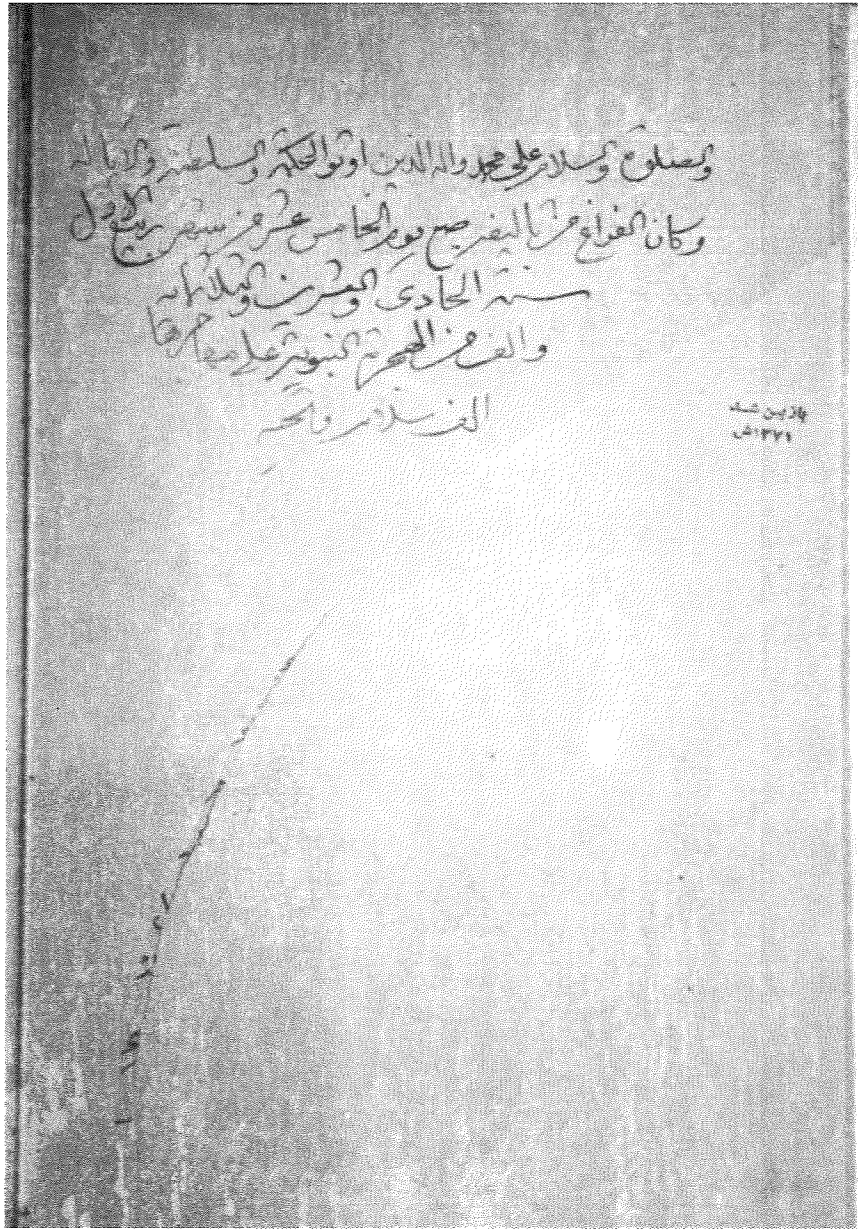 والصلوة والسلام علی محمد واله الذین اوتوا الحکمة والسلطنة والایالة
وکان الفراغ من تألیفه صبح یوم الخامس عشر من شهر ربیع الاول
سنة الحادی والعشرین والثلاثمائه
والف من الهجرة النبویة علی مهاجرها
الف سلام وتحیه
بازبین شد
۱۳۷۱ش